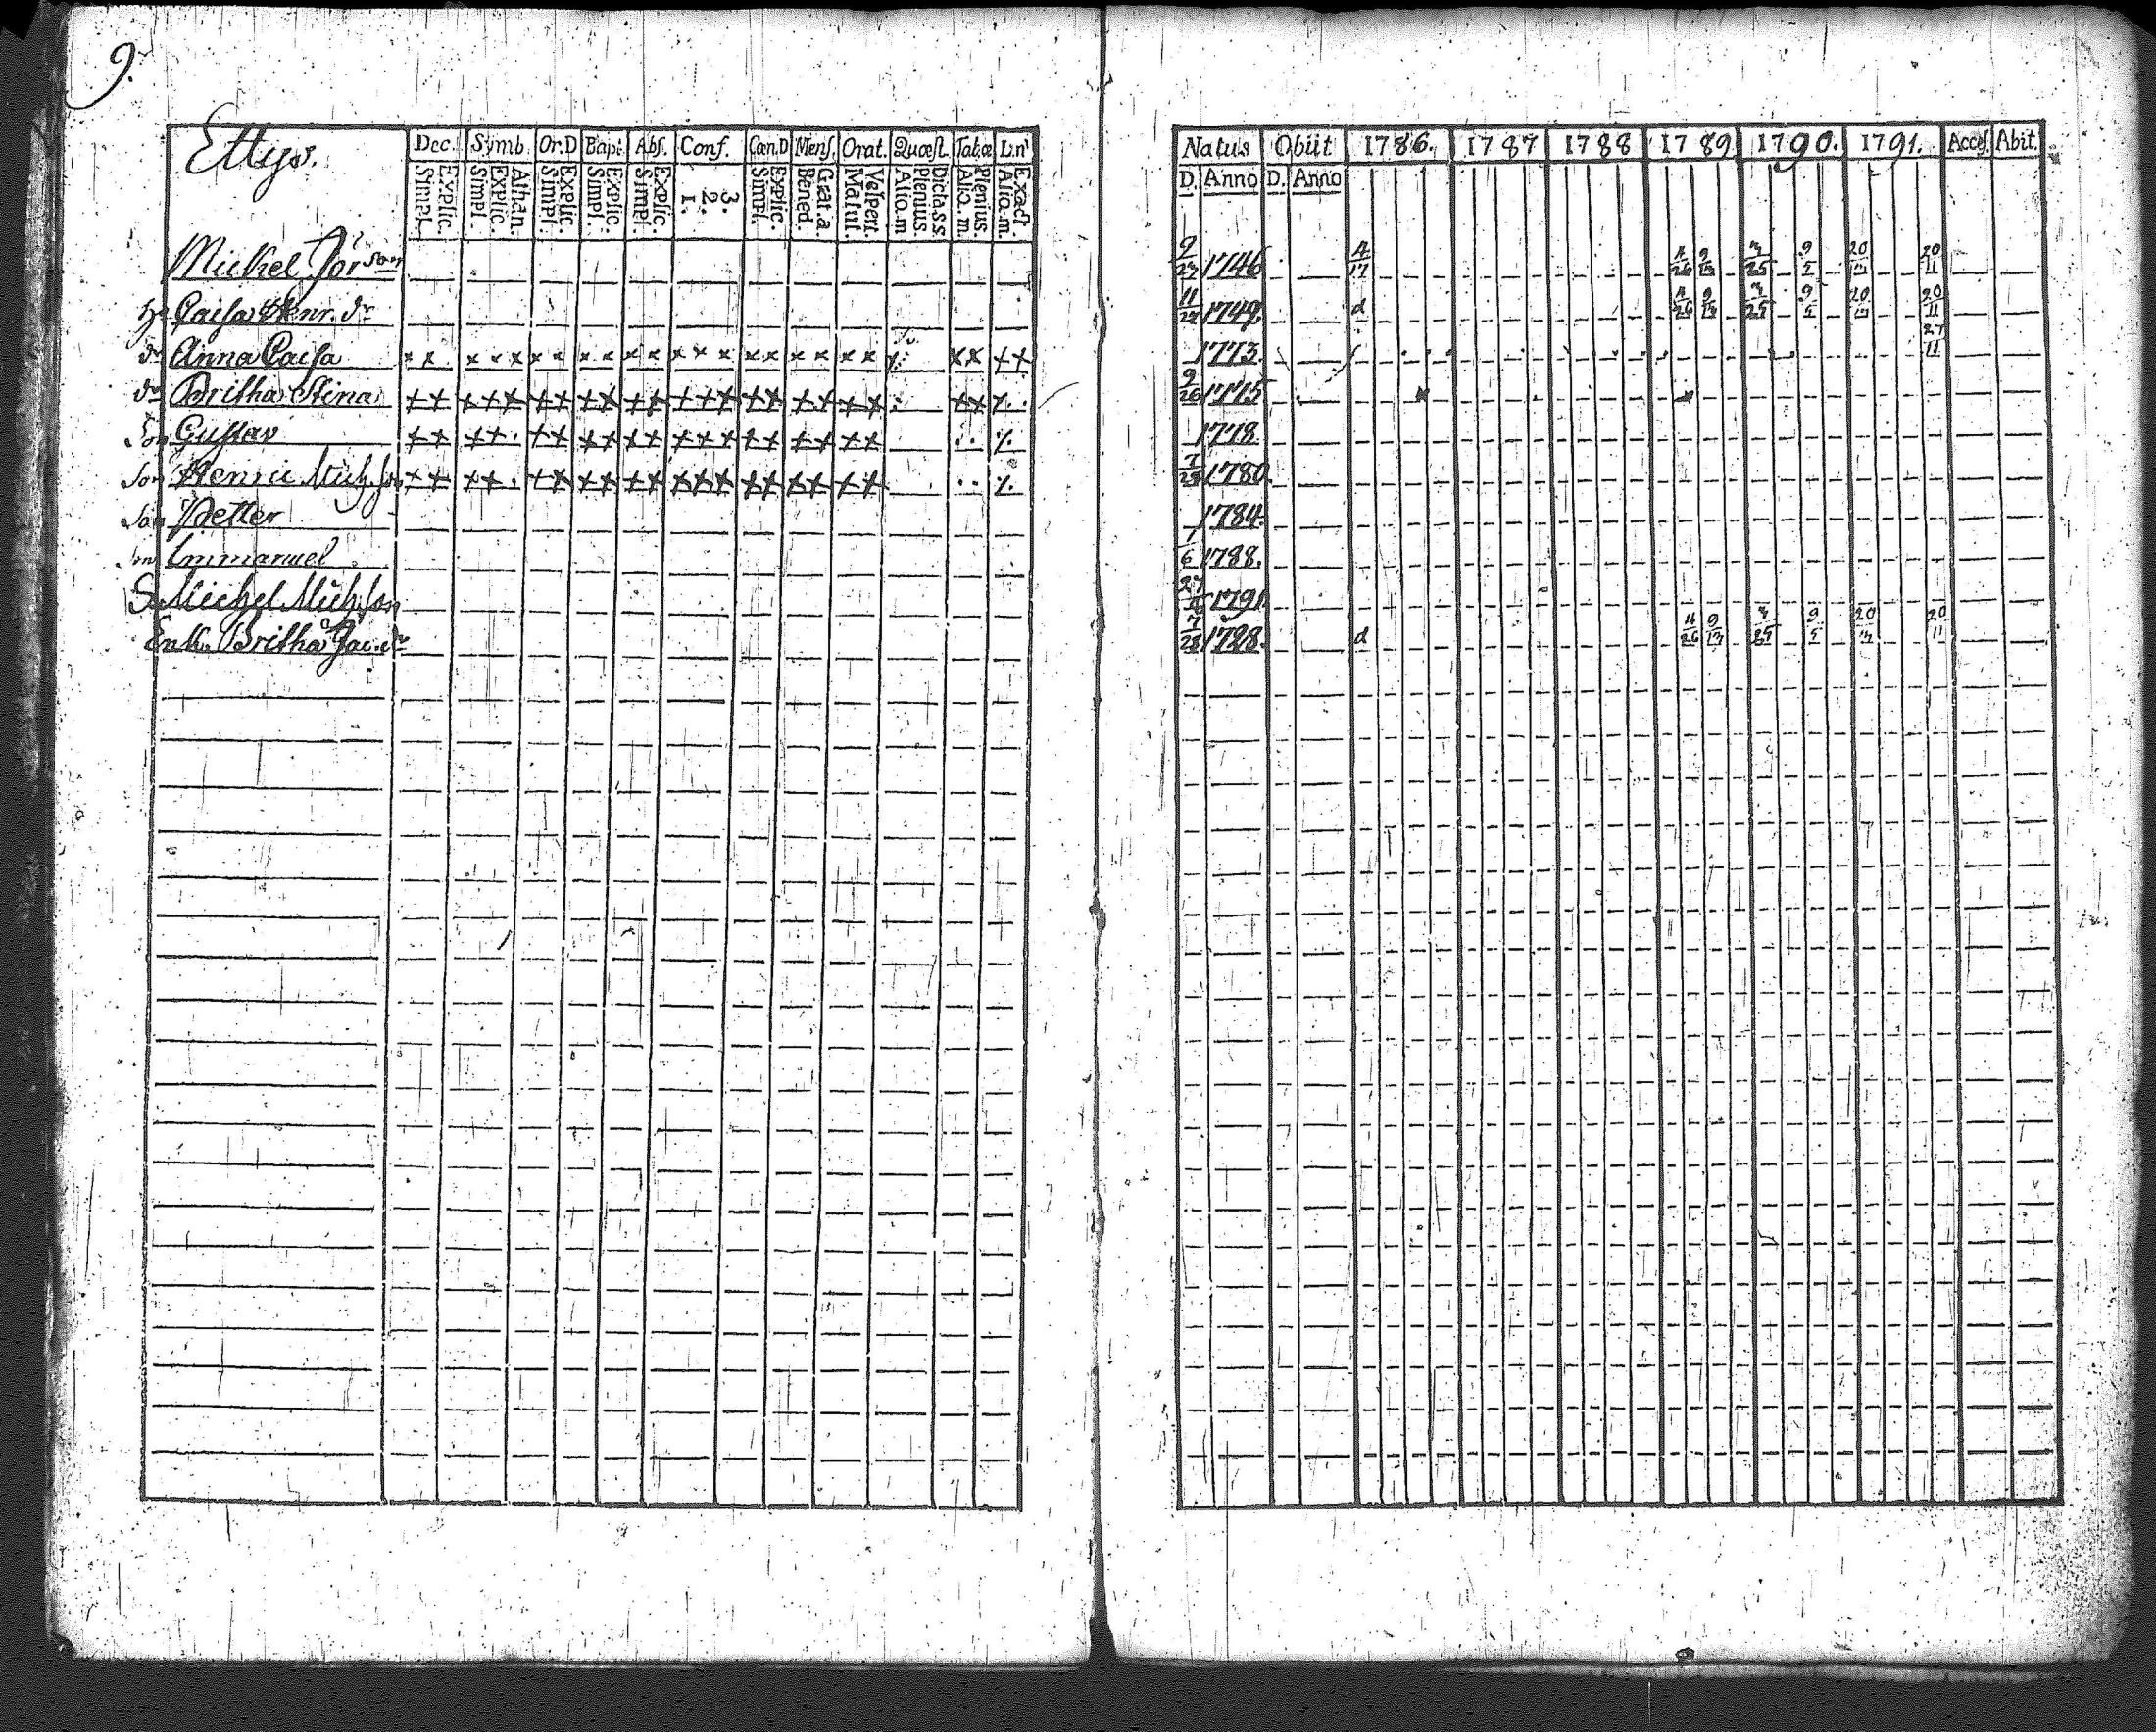 9.
Ettys.
Dec. Symb. Or.D Bapt. Abs. Conf. Cœn.D Mens. Orat. Quæst. Tab.æ Ln'
Explic. Simpl. Athan. Explic. Simpl. Explic. Simpl. Explic. Simpl. Explic. Simpl. 3. 2. 1. Explic. Simpl. Grat. a. Bened. Vespert. Matut. Dicta.s.s. Plenius. Alio.m Plenius. Alio.m. Exact Alio.m.
Michel Jör son
Caisa Henr. dr
dr Anna Caisa × × × × × × × × × × × × × × × × × × × × × × × × ×
dr Britha Stina + + + + + + + + + + + + + + + + + + + + + + +
Son Gustav + + + + + + + + + + + + + + + + + + +
Son Henric Mich.son + + + + + + + + + + + + + + + + + + +
Son Petter
Son Immanuel
S. Michel Mich.son
Enk. Britha Jac. dr
Natus Obiit 1786. 1787 1788 1789 1790. 1791. Access Abit.
D. Anno D. Anno
9/27 1746 4/17 4/26 9/13 3/25 9/5 20/11
11 1749. d 4/26 9/13 3/25 9/5 20/11
1773. 27/11
9/26 1775
1778
7 1780
1784.
1/6 1788.
27 1791
7/28 1728. d 4/26 9/13 3/25 9/5 20/11